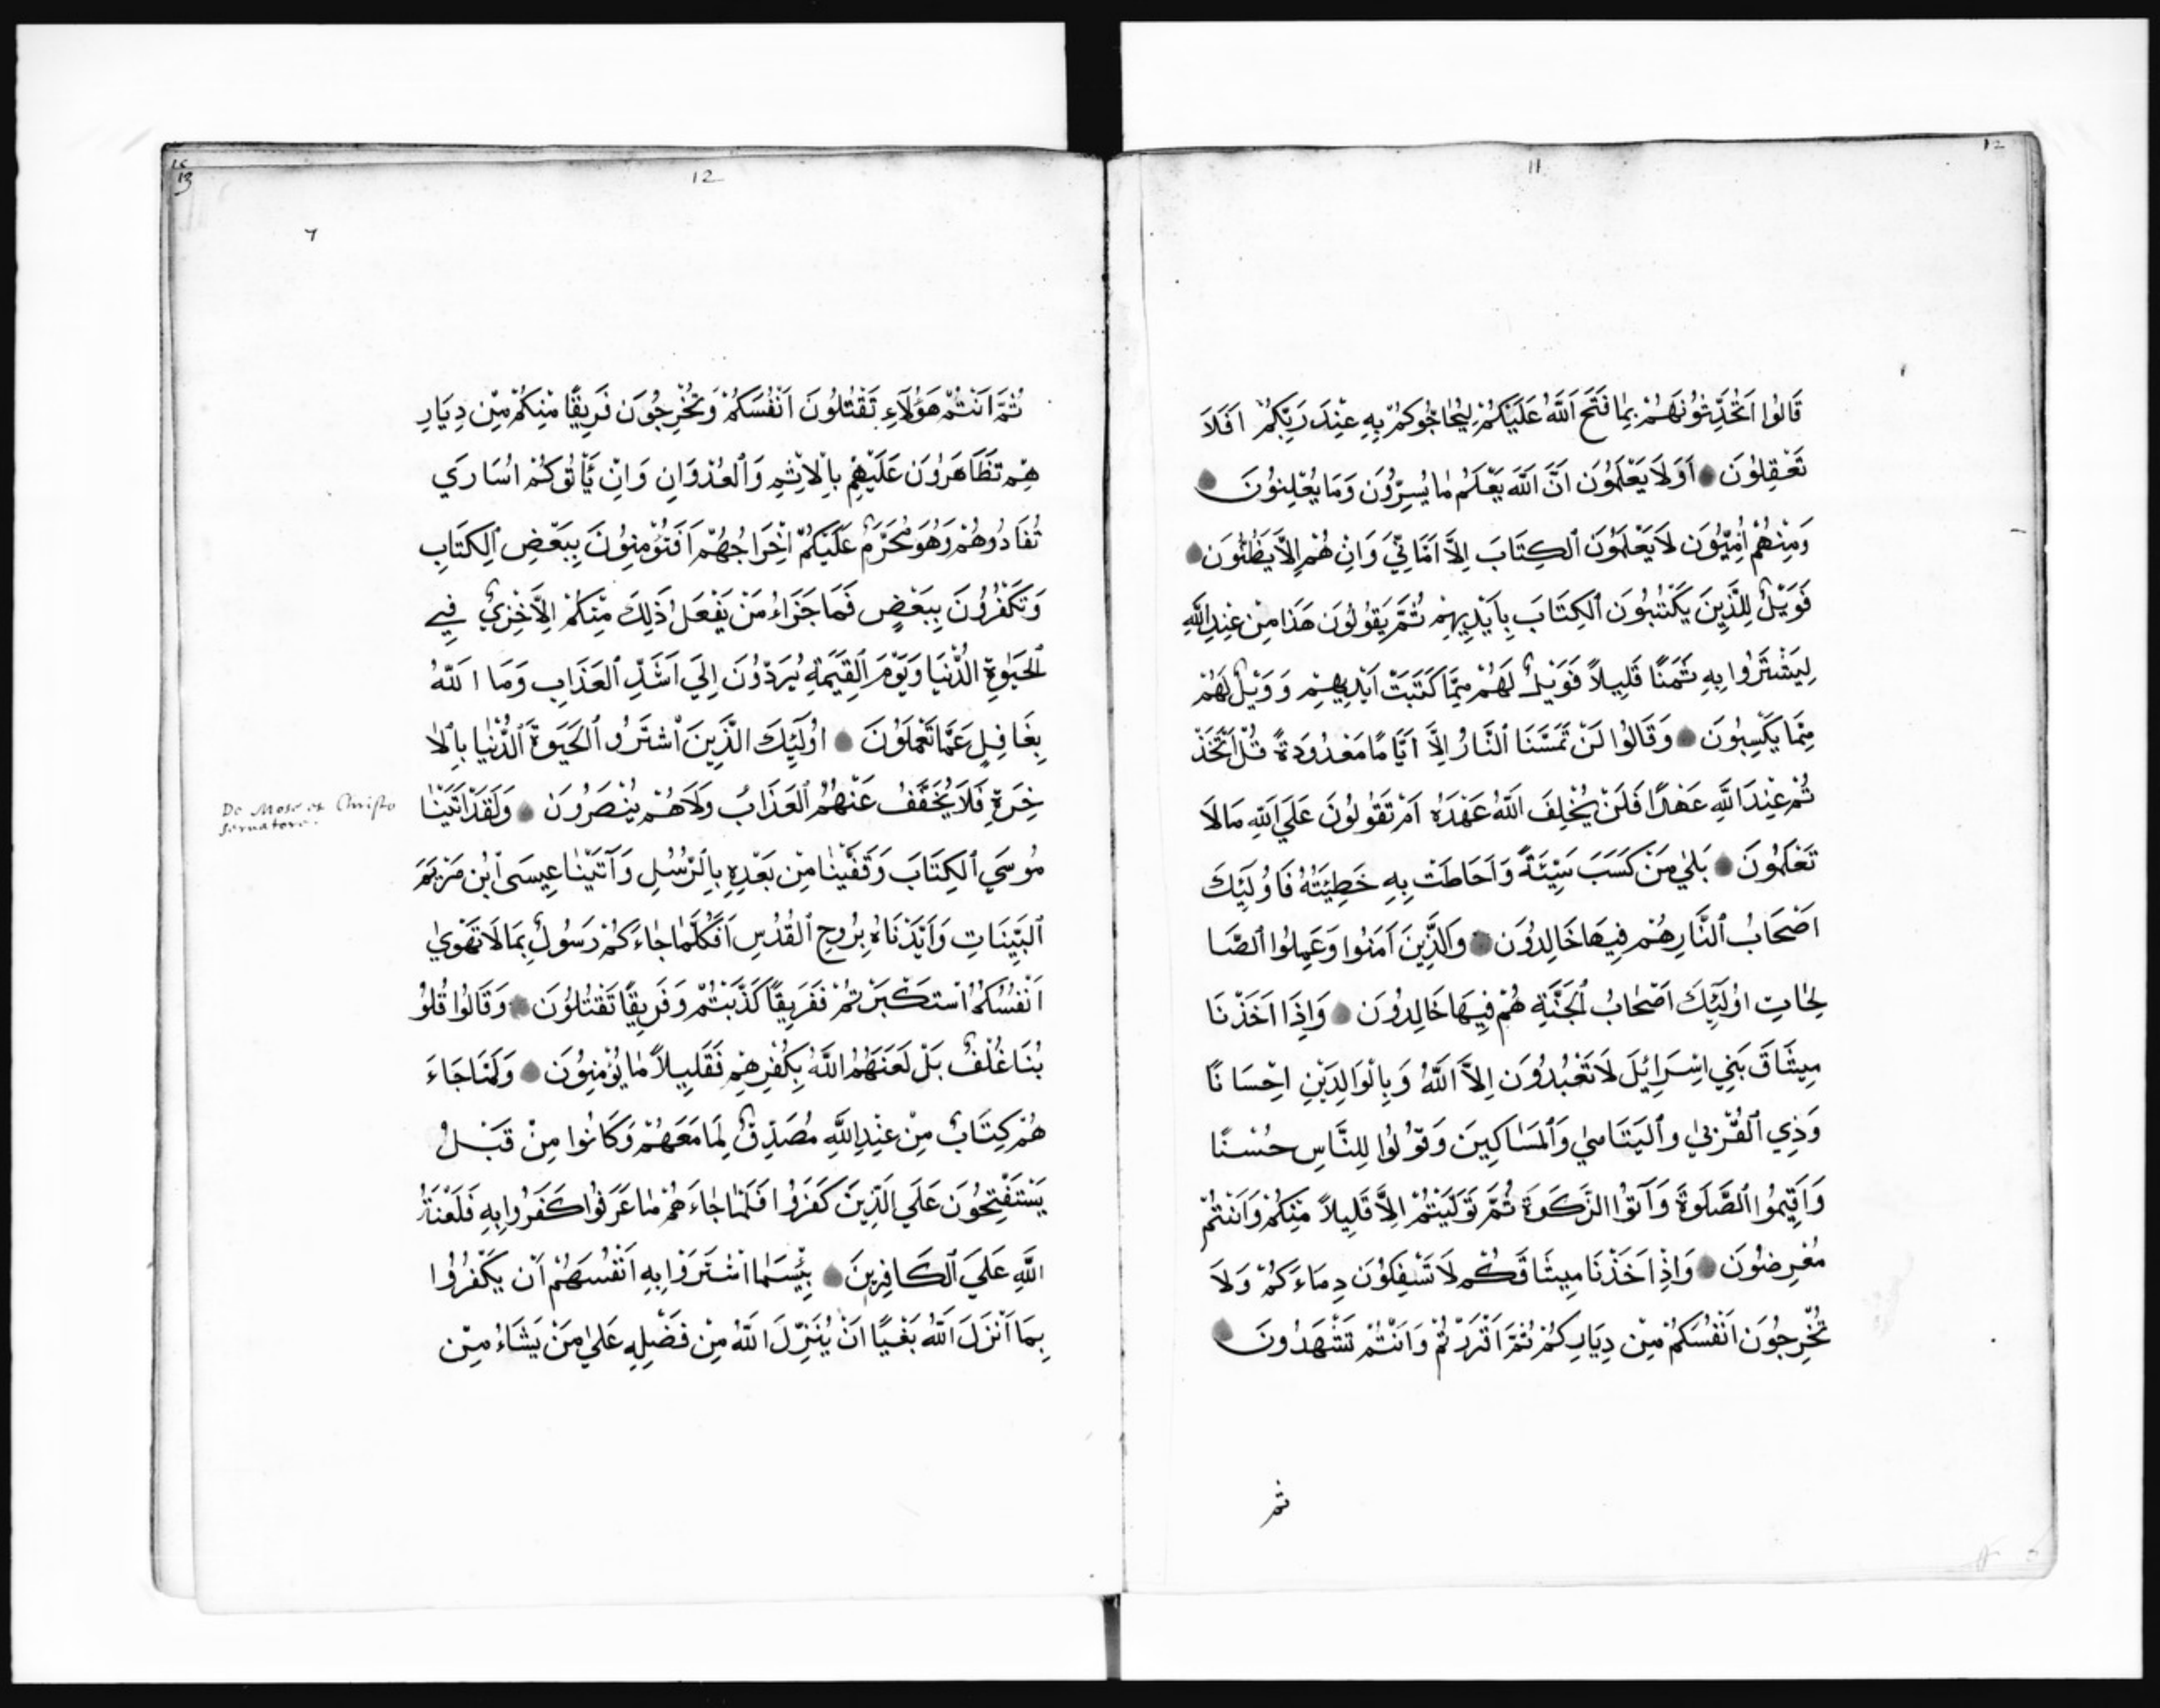 12
11
قَالُوا اَتُحَدِّثُونَهُمْ بِمَا فَتَحَ اَللَّهُ عَلَيْكُمْ لِيُحَاجُّوكُمْ بِهِ عِنْدَ رَبِّكُمْ اَفَلَا
تَعْقِلُونَ اَوَلَا يَعْلَمُونَ اَنَّ اَللَّهَ يَعْلَمُ مَا يُسِرُّونَ وَمَا يُعْلِنُونَ
وَمِنْهُمْ اُمِّيُّونَ لَا يَعْلَمُونَ ٱلكِتَابَ اِلَّا اَمَانِيَّ وَاِنْ هُمْ اِلَّا يَظُنُّونَ
فَوَيْلٌ لِلَّذِينَ يَكْتُبُونَ ٱلكِتَابَ بِاَيْدِيهِمْ ثُمَّ يَقُولُونَ هَذَا مِنْ عِنْدِ اللَّهِ
لِيَشْتَرُوا بِهِ ثَمَنًا قَلِيلاً فَوَيْلٌ لَهُمْ مِمَّا كَتَبَتْ اَيْدِيهِمْ وَوَيْلٌ لَهُمْ
مِمَّا يَكْسِبُونَ وَقَالُوا لَنْ تَمَسَّنَا ٱلنَّارُ اِلَّا اَيَّامًا مَعْدُودَةً قُلْ اَتَّخَذْ
تُمْ عِنْدَ اللَّهِ عَهْدًا فَلَنْ يُخْلِفَ اَللَّهُ عَهْدَهُ اَمْ تَقُولُونَ عَلَي اَللَّهِ مَا لَا
تَعْلَمُونَ بَلَي مَنْ كَسَبَ سَيِّئَةً وَاَحَاطَتْ بِهِ خَطِيئَتُهُ فَاُولَئِكَ
اَصْحَابُ ٱلنَّارِ هُمْ فِيهَا خَالِدُونَ وَالَّذِينَ اَمَنُوا وَعَمِلُوا ٱلصَّا
لِحَاتِ اُولَئِكَ اَصْحَابُ ٱلْجَنَّةِ هُمْ فِيهَا خَالِدُونَ وَاِذَا اَخَذْنَا
مِيثَاقَ بَنِي اِسْرَائِيلَ لَا تَعْبُدُونَ اِلَّا اَللَّهَ وَبِالْوَالِدَيْنِ اِحْسَانًا
وَذِي ٱلقُرْبَي وٱليَتَامَي وَٱلمَسَاكِينَ وَقُولُوا لِلنَّاسِ حُسْنًا
وَاَقِيمُوا ٱلصَّلَوةَ وَآتُوا الزَّكَوةَ ثُمَّ تَوَلَّيْتُمْ اِلَّا قَلِيلاً مِنْكُمْ وَاَنْتُمْ
مُعْرِضُونَ وَاِذِ اَخَذْنَا مِيثَاقَكُمْ لَا تَسْفِكُونَ دِمَاءَكُمْ وَلَا
تُخْرِجُونَ اَنْفُسَكُمْ مِنْ دِيَارِكُمْ ثُمَّ اَقْرَرْتُمْ وَاَنْتُمْ تَشْهَدُونَ
ثم
ثُمَّ اَنْتُمْ هَؤُلَاءِ تَقْتُلُونَ اَنْفُسَكُمْ وَتُخْرِجُونَ فَرِيقًا مِنْكُمْ مِنْ دِيَارِ
هِمْ تَظَاهَرُونَ عَلَيْهِمْ بِالْاِثْمِ وَٱلعُدْوَانِ وَاِنْ يَأْتُوكُمْ اُسَارَي
تُفَادُوهُمْ وَهُوَ مُحَرَّمٌ عَلَيْكُمْ اِخْرَاجُهُمْ اَفَتُؤْمِنُونَ بِبَعْضِ ٱلكِتَابِ
وَتَكْفُرُونَ بِبَعْضٍ فَمَا جَزَاءُ مَنْ يَفْعَلُ ذَلِكَ مِنْكُمْ اِلَّا خِزْيٌ فِي
ٱلحَيَوةِ الدُّنْيَا وَيَوْمَ ٱلقِيَمَةِ يُرَدُّونَ اِلَي اَشَدِّ ٱلعَذَابِ وَمَا اللَّهُ
بِغَافِلٍ عَمَّا تَعْمَلُونَ اُولَئِكَ الَّذِينَ ٱشْتَرَوُا ٱلحَيَوةَ ٱلدُّنْيَا بِالْا
خِرَةِ فَلَا يُخَفَّفُ عَنْهُمُ ٱلعَذَابُ وَلَا هُمْ يُنْصَرُونَ وَلَقَدْ اَتَيْنَا
De Mose et Christo
servatore.
مُوسَي ٱلكِتَابَ وَقَفَّيْنَا مِنْ بَعْدِهِ بِالرُّسُلِ وَآتَيْنَا عِيسَى ٱبْنَ مَرْيَمَ
ٱلبَيِّنَاتِ وَاَيَّدْنَاهُ بِرُوحِ ٱلقُدُسِ اَفَكُلَّمَا جَاءَكُمْ رَسُولٌ بِمَا لَا تَهْوَي
اَنْفُسُكُمُ ٱسْتَكْبَرْتُمْ فَفَرِيقًا كَذَّبْتُمْ وَفَرِيقًا تَقْتُلُونَ وَقَالُوا قُلُو
بُنَا غُلْفٌ بَلْ لَعَنَهُمُ اللَّهُ بِكُفْرِهِمْ فَقَلِيلاً مَا يُؤْمِنُونَ وَلَمَّا جَاءَ
هُمْ كِتَابٌ مِنْ عِنْدِ اللَّهِ مُصَدِّقٌ لِمَا مَعَهُمْ وَكَانُوا مِنْ قَبْلُ
يَسْتَفْتِحُونَ عَلَي الَّذِينَ كَفَرُوا فَلَمَّا جَاءَهُمْ مَا عَرَفُوا كَفَرُوا بِهِ فَلَعْنَةُ
اللَّهِ عَلَي ٱلكَافِرِينَ بِئْسَمَا اشْتَرَوْا بِهِ اَنْفُسَهُمْ اَنْ يَكْفُرُوا
بِمَا اَنْزَلَ اَللَّهُ بَغْيًا اَنْ يُنَزِّلَ اللَّهُ مِنْ فَضْلِهِ عَلَي مَنْ يَشَاءُ مِنْ